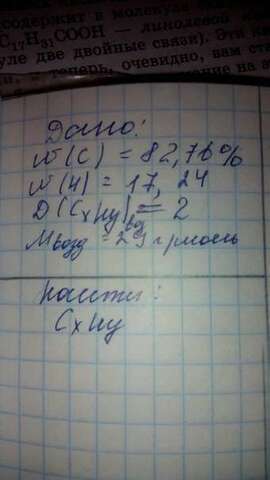 содержит в молекуле
C₁₇H₃₁COOH — линолевой
уле две двойные связи). Эти
теперь, очевидно, вам ст
Дано:
w(C) = 82,76%
w(H) = 17,24
D(CxHy)возд = 2
Mвозд = 29 г/моль
Найти:
CxHy